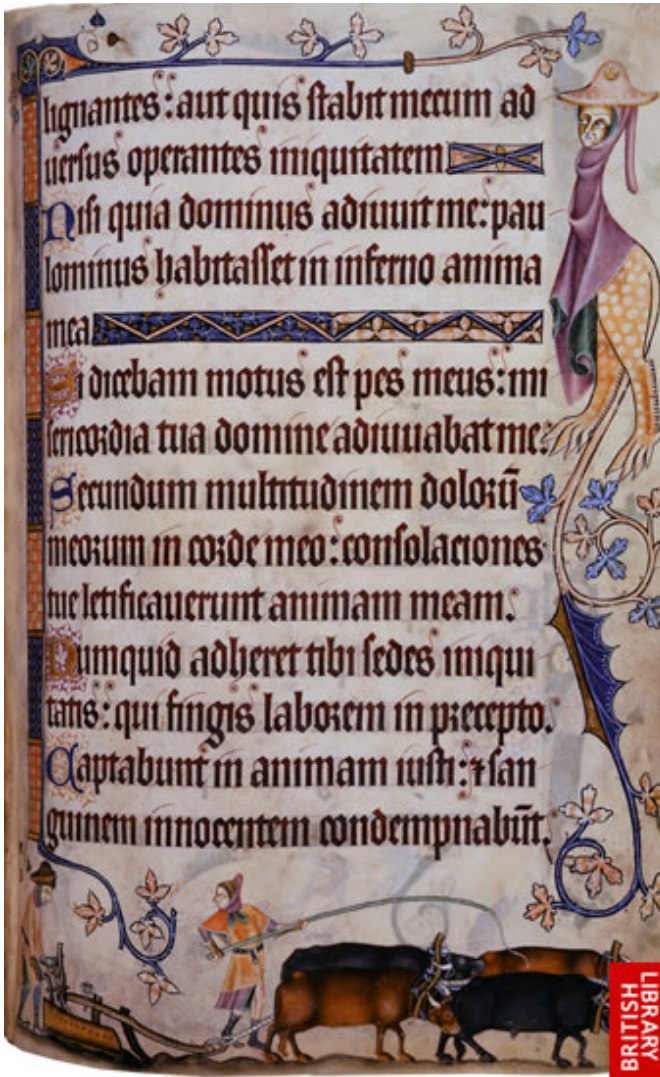 lignantes: aut quis stabit mecum ad
uersus operantes iniquitatem
Nisi quia dominus adiuuit me: pau
lominus habitasset in inferno anima
mea
Si dicebam motus est pes meus: mi
sericordia tua domine adiuuabat me:
Secundum multitudinem dolorū
meorum in corde meo: consolaciones
tue letificauerunt animam meam.
Numquid adheret tibi sedes iniqui
tatis: qui fingis laborem in precepto.
Captabunt in animam iusti: ⁊ san
guinem innocentem condempnabūt.
LIBRARY
BRITISH